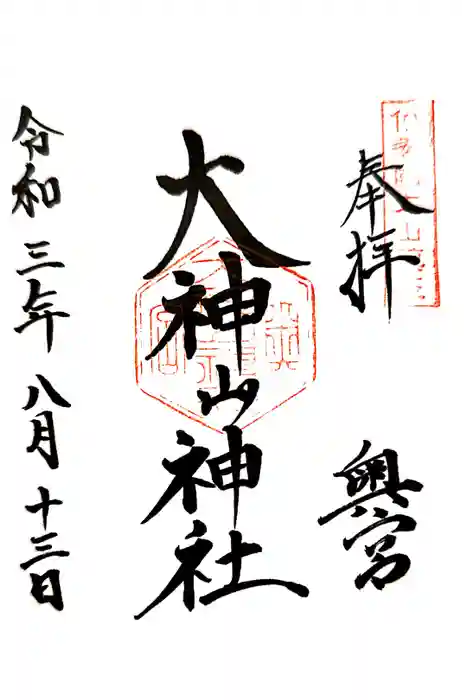 奉拝
奥宮
大神山神社
令和三年八月十三日